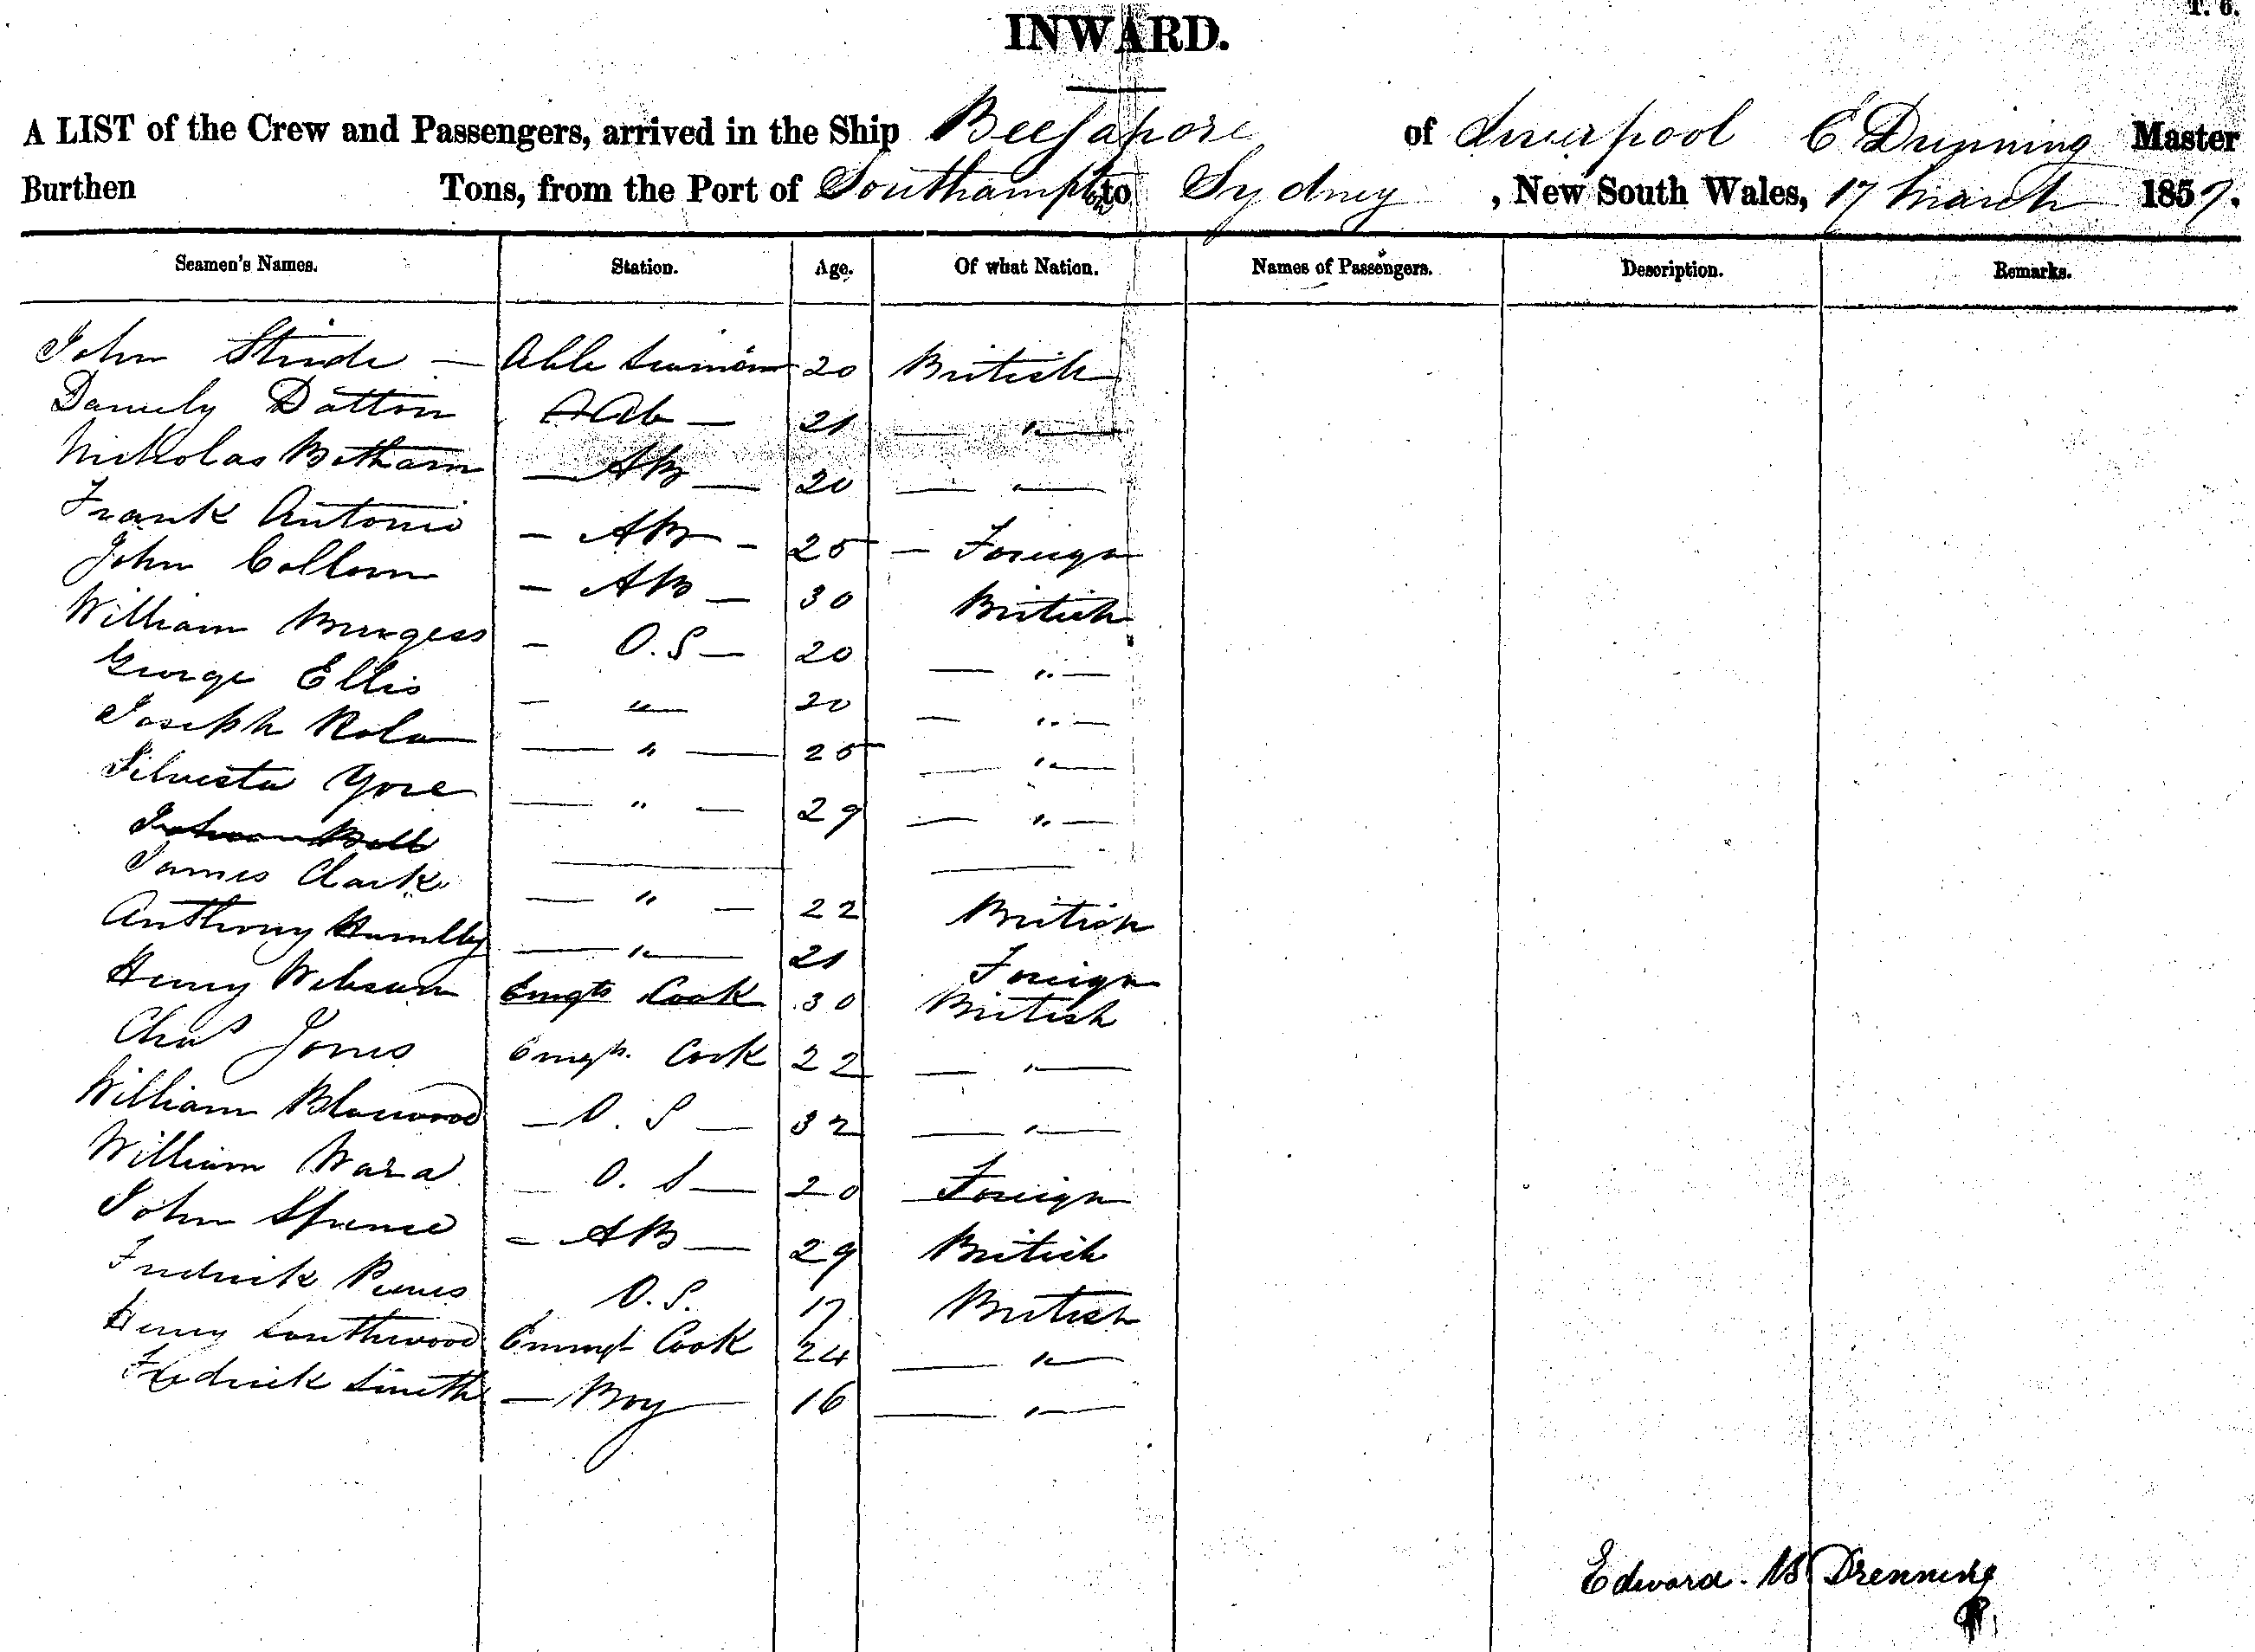 T. 6.
INWARD.
A LIST of the Crew and Passengers, arrived in the Ship Beejapore of Liverpool E Drenning Master
Burthen Tons, from the Port of Southampton to Sydney , New South Wales, 17 March 1857.
Seamen's Names. Station. Age. Of what Nation. Names of Passengers. Description. Remarks.
John Stride — Able Seaman 20 British
Datton Ab — 21 — " —
Nickolas Botham — AB — 20 — " —
Frank Antonio — AB — 25 — Foreign
John Collom — AB — 30 British
William Burgess — O.S — 20 — " —
George Ellis — " — 20 — " —
Joseph — " — 25 — " —
Silvesta Yore — " — 29 — " —
Bell
James Clark — " — 22 British
Anthony — " — 21 Foreign
Henry Emgts Cook 30 British
Chas Jones Emgts. Cook 22 — " —
William — O. S — 32 — " —
William Ward — O. S — 20 Foreign
John Spence — AB — 29 British
Fredrick O.S. 17 British
Henry Southwood Emmgt Cook 24 — " —
Fredrick Smith — Boy 16 — " —
Edward Drenning